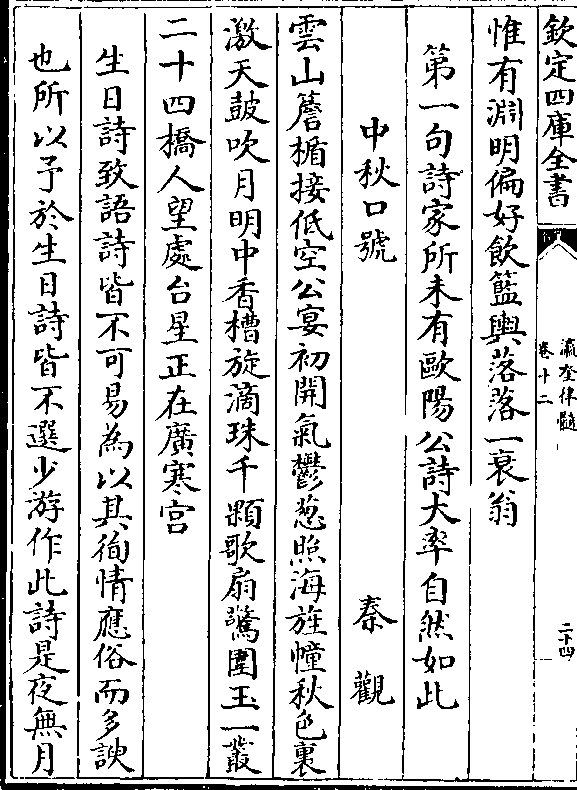 欽定四庫全書
瀛奎律髓
卷十二
二十四
惟有淵明偏好飲籃輿落落一衰翁
第一句詩家所未有歐陽公詩大率自然如此
中秋口號 秦觀
雲山簷楯接低空公宴初開氣鬱葱照海旌幢秋色裏
激天鼓吹月明中香槽旋滴珠千顆歌扇驚圍玉一叢
二十四橋人望處台星正在廣寒宮
生日詩致語詩皆不可易為以其徇情應俗而多諛
也所以予於生日詩皆不選少游作此詩是夜無月